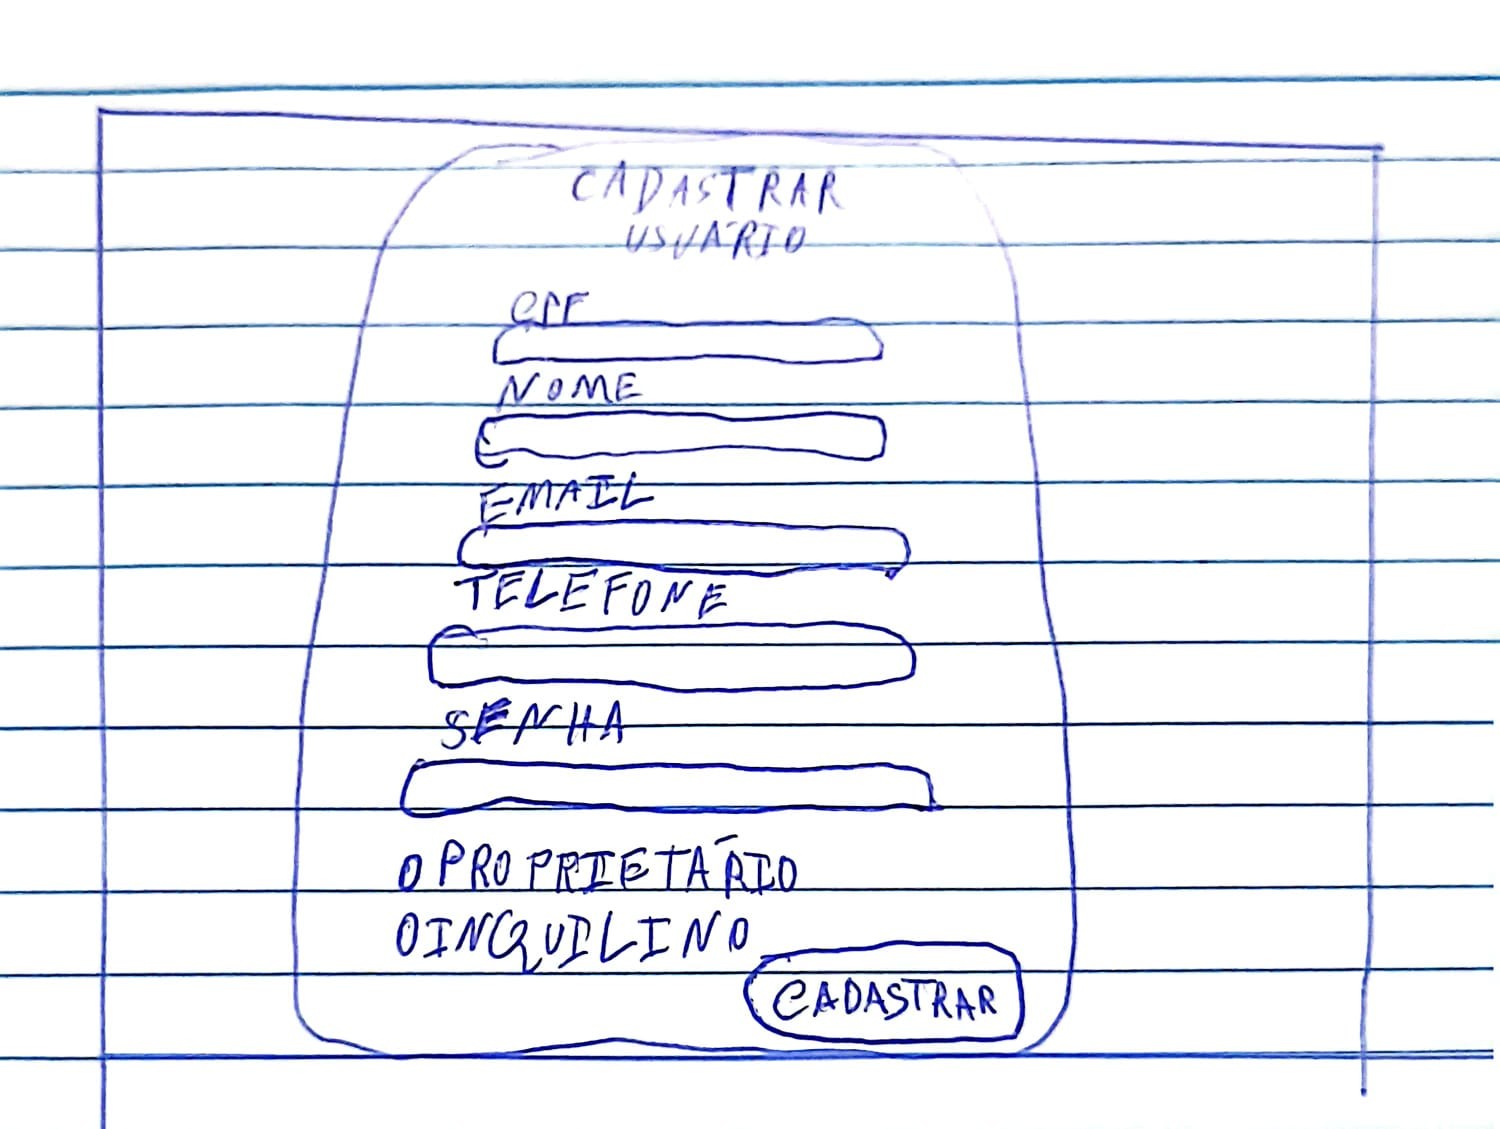 CADASTRAR
USUÁRIO
CPF
NOME
EMAIL
TELEFONE
SENHA
O PROPRIETÁRIO
O INQUILINO
CADASTRAR